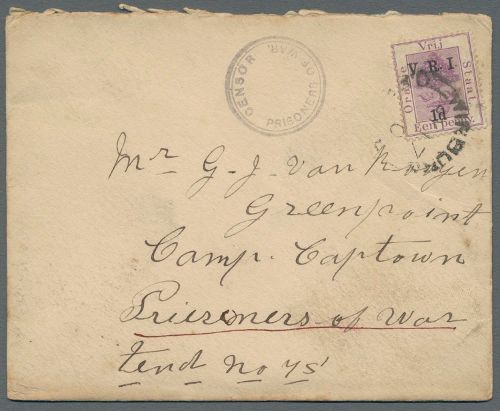 CENSOR PRISONERS OF WAR.
Vrij
Oranje Staat
V. R. I.
1d
Een penny.
Mr G. J. Van Rooyen
Greenpoint
Camp. Captown
Priesoners of War
tend no 45